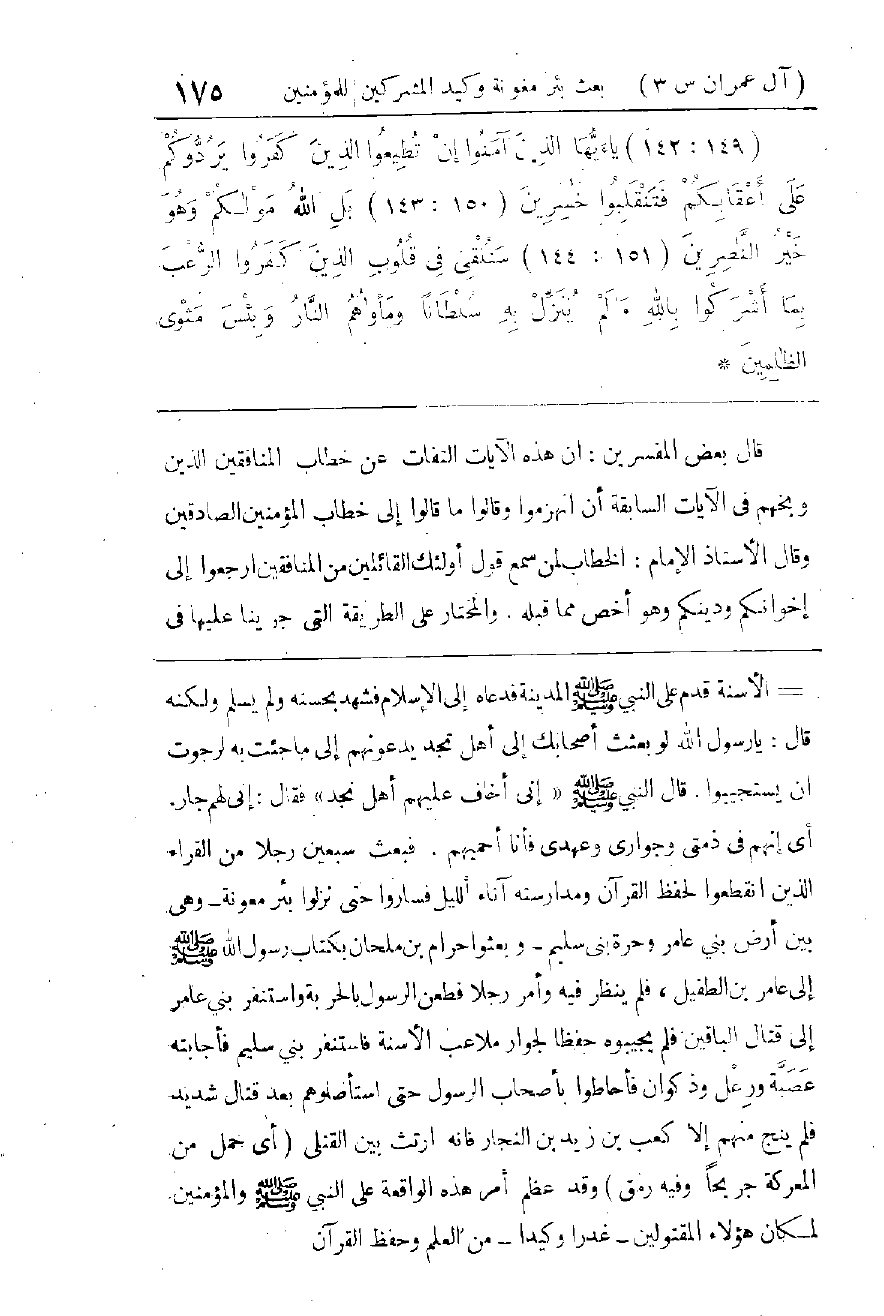 ( آل عمران س ٣ ) بعث بئر مغونة وكيد المشركين للمؤمنين ١٧٥
( ١٤٩ : ١٤٢ ) يٰاءَيُّهَا الذِينَ آمَنُوا إِنْ تُطِيعُوا الذِينَ كَفَرُوا يَرُدُّوكُمْ
عَلَى أَعْقَابِكُمْ فَتَنْقَلِبُوا خٰسِرِينَ ( ١٥٠ : ١٤٣ ) بَلِ اللهُ مَوْلٰىكُمْ وَهُوَ
خَيْرُ النّٰصِرِينَ ( ١٥١ : ١٤٤ ) سَنُلْقِي فِي قُلُوبِ الذِينَ كَفَرُوا الرُّعْبَ
بِمَا أَشْرَكُوا بِاللهِ مَا لَمْ يُنَزِّلْ بِهِ سُلْطَانًا وَمَأْوَاهُمُ النَّارُ وَبِئْسَ مَثْوَى
الظالِمِينَ *
قال بعض المفسرين : ان هذه الآيات التفات عن خطاب المنافقين الذين
وبخهم فى الآيات السابقة أن انهزموا وقالوا ما قالوا إلى خطاب المؤمنين الصادقين
وقال الأستاذ الإمام : الخطاب لمن سمع قول أولئك القائلين من المنافقين ارجعوا إلى
إخوانكم ودينكم وهو أخص مما قبله . والمختار على الطريقة التى جرينا عليها فى
= الأسنة قدم على النبي ﷺ المدينة فدعاه إلى الإسلام فشهد بحسنه ولم يسلم ولكنه
قال : يارسول الله لو بعثت أصحابك إلى أهل نجد يدعونهم إلى ماجئت به لرجوت
ان يستجيبوا . قال النبي ﷺ « إنى أخاف عليهم أهل نجد» فقال : إنى لهم جار.
أى إنهم فى ذمتى وجوارى وعهدى فأنا أحميهم . فبعث سبعين رجلا من القراء
الذين انقطعوا لحفظ القرآن ومدارسته آناء ألليل فساروا حتى نزلوا بئر معونة ــ وهى
بين أرض بني عامر وحرة بنى سليم ــ و بعثوا حرام بن ملحان بكتاب رسول الله ﷺ
إلى عامر بن الطفيل ، فلم ينظر فيه وأمر رجلا فطعن الرسول بالحربة واستنفر بني عامر
إلى قتال الباقين فلم يجيبوه حفظا لجوار ملاعب الأسنة فاستنفر بني سليم فأجابته
عَصَبَّة ورِعْل وذكوان فأحاطوا بأصحاب الرسول حتى استأصلوهم بعد قتال شديد
فلم ينج منهم إلا كعب بن زيد بن النجار فانه ارتث بين القتلى ( أى حمل من
المعركة جريحاً وفيه رمق ) وقد عظم أمر هذه الواقعة على النبي ﷺ والمؤمنين
لمكان هؤلاء المقتولين ــ غدرا وكيدا ــ من العلم وحفظ القرآن